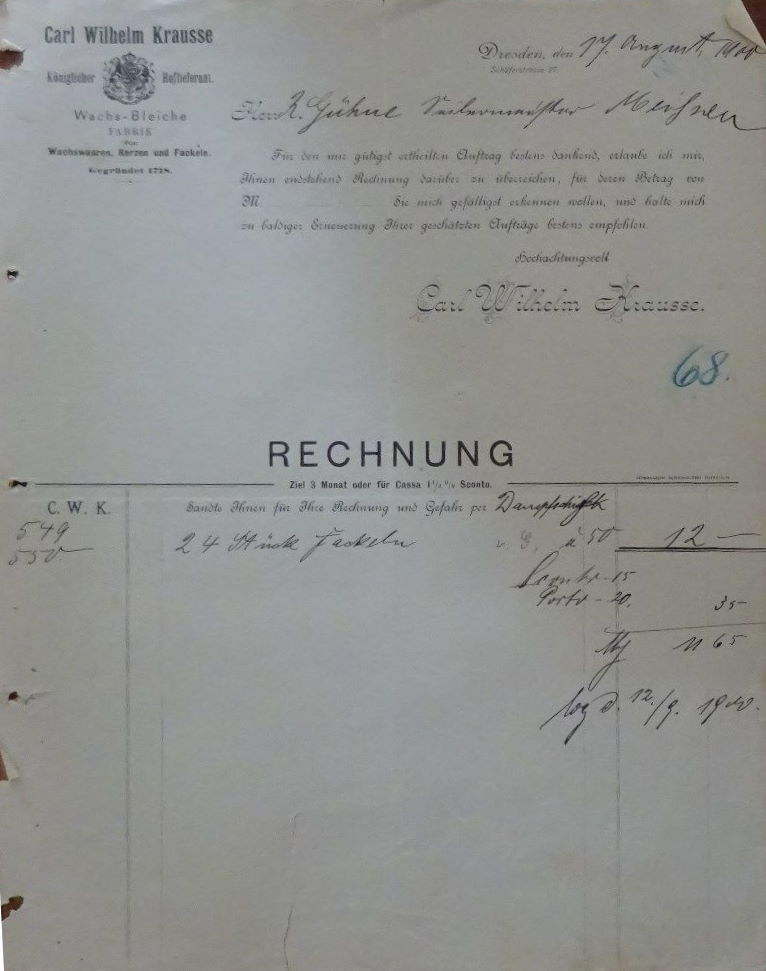 Carl Wilhelm Krausse
Königlicher Hoflieferant.
Wachs-Bleiche
FABRIK
von
Wachswaaren, Kerzen und Fackeln.
Gegründet 1728.
Dresden, den 17. August 1900
Schäferstrasse 27.
Herrn R. Gühne Seilermeister Meißen
Für den mir gütigst ertheilten Auftrag bestens dankend, erlaube ich mir,
Ihnen endstehend Rechnung darüber zu überreichen, für deren Betrag von
M. Sie mich gefälligst erkennen wollen, und halte mich
zu baldiger Erneuerung Ihrer geschätzten Aufträge bestens empfohlen.
Hochachtungsvoll
Carl Wilhelm Krausse.
68.
RECHNUNG
Ziel 3 Monat oder für Cassa 1½ % Sconto.
C. W. K.
Sandte Ihnen für Ihre Rechnung und Gefahr per Dampfschiff
549
550
24 Stück Fackeln à 50 12 —
Sconto - 15
Porto - 20. 35
M 11 65
d. 12./9. 1900.